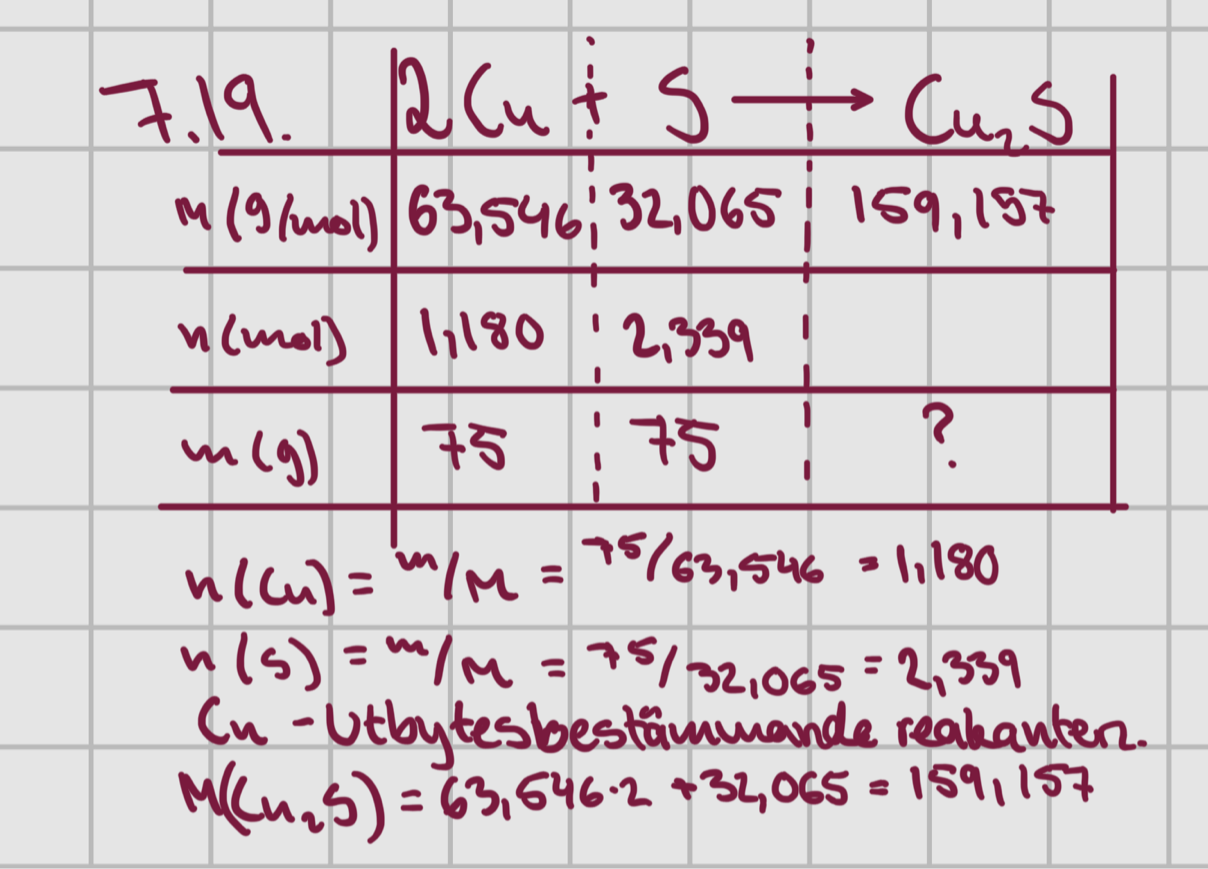 7.19. 2Cu + S → Cu₂S
M (g/mol) 63,546 32,065 159,157
n (mol) 1,180 2,339
m (g) 75 75 ?
n(Cu) = m/M = 75/63,546 = 1,180
n(S) = m/M = 75/32,065 = 2,339
Cu - Utbytesbestämmande reakanten.
M(Cu₂S) = 63,546·2 + 32,065 = 159,157